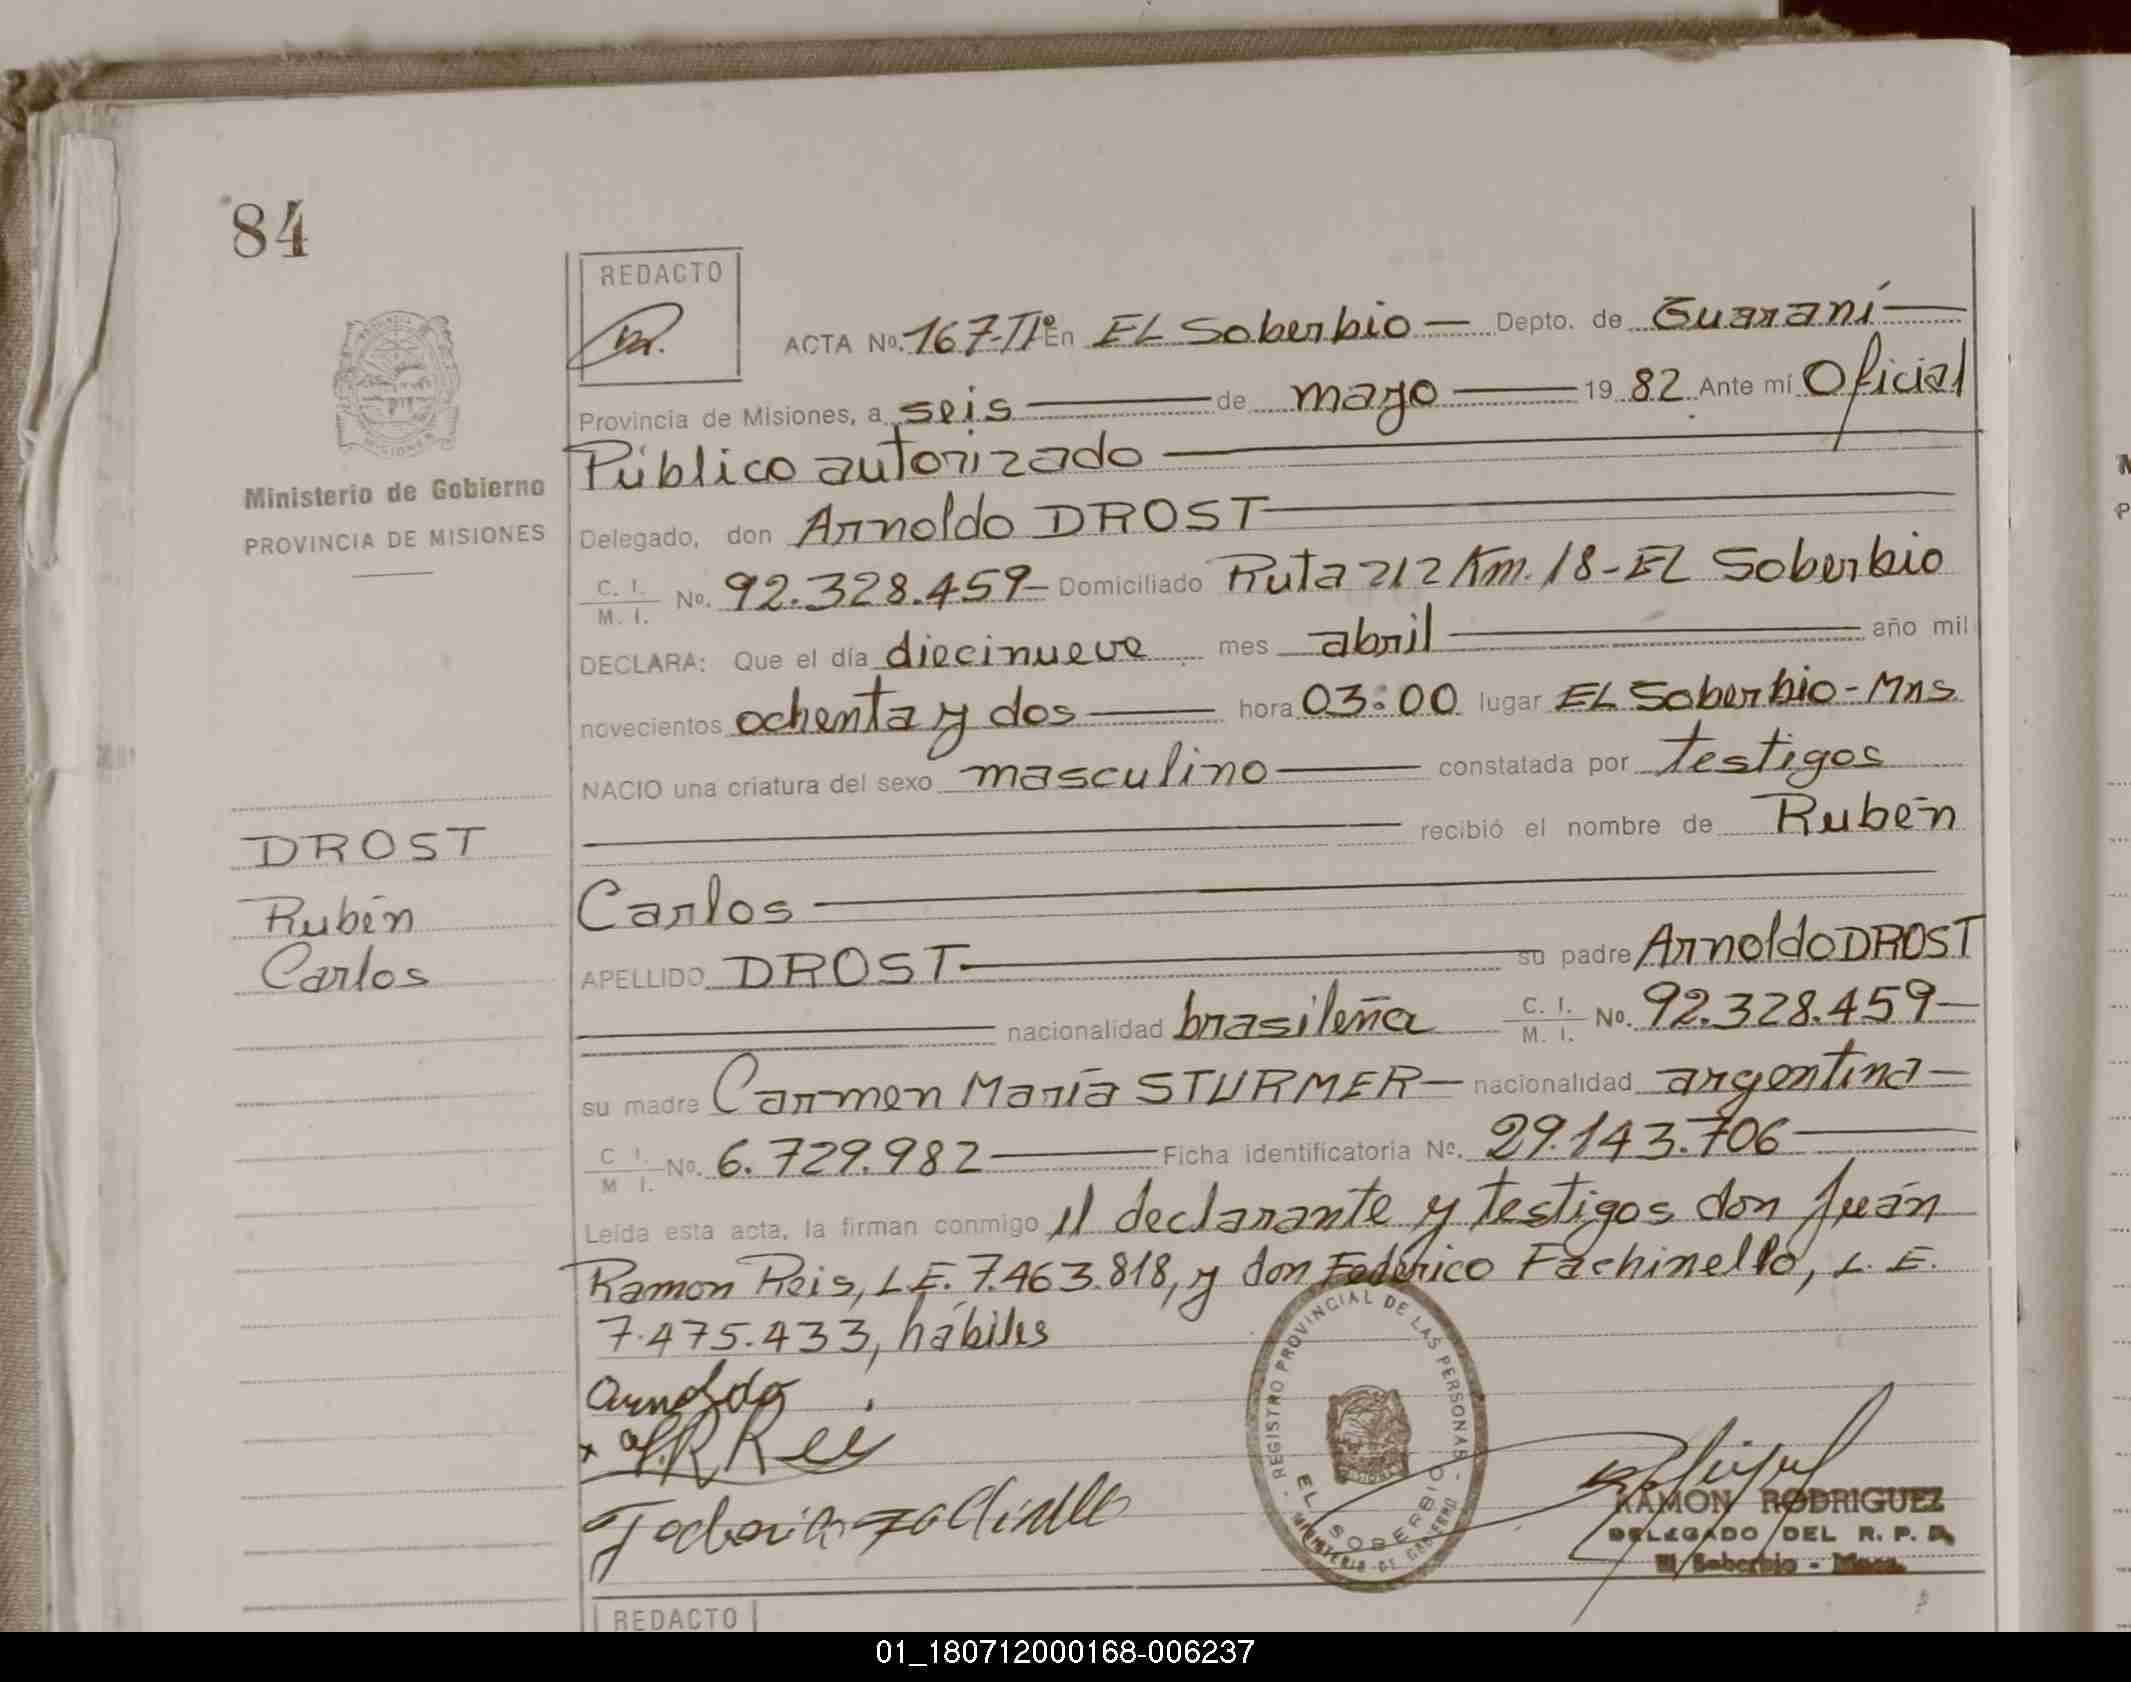 84
REDACTO
ACTA Nº. 167-IIº En EL Soberbio — Depto. de Guaraní —
Provincia de Misiones, a seis — de mayo — 19 82 Ante mí Oficial
Público autorizado —
Ministerio de Gobierno
PROVINCIA DE MISIONES
Delegado, don Arnoldo DROST —
C. I. / M. I. Nº. 92.328.459 - Domiciliado Ruta 212 Km. 18 - EL Soberbio
DECLARA: Que el día diecinueve mes abril — año mil
novecientos ochenta y dos — hora 03:00 lugar EL Soberbio - Mns
NACIO una criatura del sexo masculino — constatada por testigos
— recibió el nombre de Rubén
DROST
Rubén
Carlos
Carlos —
APELLIDO DROST — su padre Arnoldo DROST
— nacionalidad brasileña C. I. / M. I. Nº. 92.328.459 —
su madre Carmen María STURMER — nacionalidad argentina —
C. I. / M. I. Nº. 6.729.982 — Ficha identificatoria Nº. 29.143.706 —
Leída esta acta, la firman conmigo el declarante y testigos don Juán
Ramon Reis, L.E. 7.463.818, y don Federico Fachinello, L. E.
7.475.433, hábiles
Arnoldo
REGISTRO PROVINCIAL DE LAS PERSONAS - MINISTERIO DE GOBIERNO -
EL SOBERBIO
RAMON RODRIGUEZ
DELEGADO DEL R. P. P.
El Soberbio - Mnes.
REDACTO
01_180712000168-006237